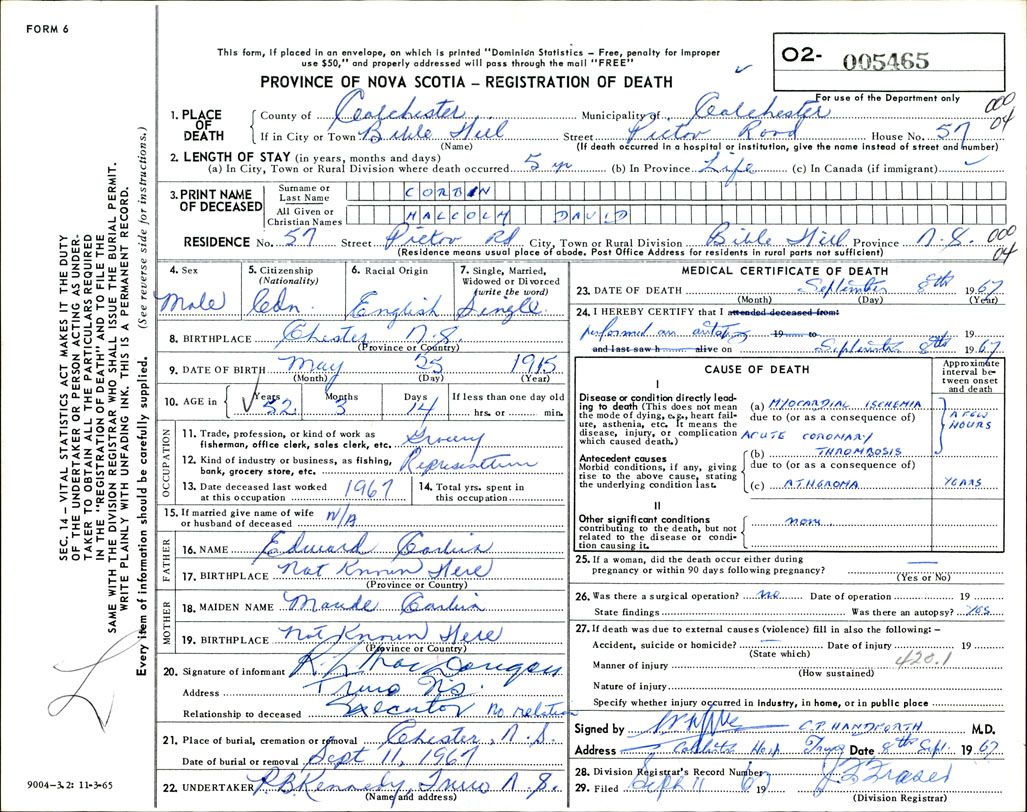 FORM 6
This form, if placed in an envelope, on which is printed "Dominion Statistics – Free, penalty for improper
use $50," and properly addressed will pass through the mail "FREE"
PROVINCE OF NOVA SCOTIA – REGISTRATION OF DEATH
O2- 005465
For use of the Department only
000
04
1. PLACE OF DEATH
County of Colchester Municipality of Colchester
If in City or Town Bible Hill Street Pictou Road House No. 57
(Name) (If death occurred in a hospital or institution, give the name instead of street and number)
2. LENGTH OF STAY (in years, months and days)
(a) In City, Town or Rural Division where death occurred 5 yr (b) In Province Life (c) In Canada (if immigrant)
3. PRINT NAME OF DECEASED
Surname or Last Name CORBIN
All Given or Christian Names MALCOLM DAVID
RESIDENCE No. 57 Street Pictou Rd City, Town or Rural Division Bible Hill Province N.S. 000
04
(Residence means usual place of abode. Post Office Address for residents in rural parts not sufficient)
4. Sex
Male
5. Citizenship
(Nationality)
Cdn.
6. Racial Origin
English
7. Single, Married,
Widowed or Divorced
(write the word)
Single
8. BIRTHPLACE Chester N.S.
(Province or Country)
9. DATE OF BIRTH May 25 1915
(Month) (Day) (Year)
10. AGE in Years Months Days If less than one day old
52 3 14 hrs. or min.
OCCUPATION
11. Trade, profession, or kind of work as
fisherman, office clerk, sales clerk, etc. Grocery
12. Kind of industry or business, as fishing,
bank, grocery store, etc. Representative
13. Date deceased last worked
at this occupation 1967
14. Total yrs. spent in
this occupation
15. If married give name of wife
or husband of deceased N/A
FATHER
16. NAME Edward Corbin
17. BIRTHPLACE Not Known Here
(Province or Country)
MOTHER
18. MAIDEN NAME Maude Corbin
19. BIRTHPLACE Not Known Here
(Province or Country)
20. Signature of informant
Address Truro N.S.
Relationship to deceased Executor No relation
21. Place of burial, cremation or removal Chester, N.S.
Date of burial or removal Sept 11, 1967
22. UNDERTAKER Kennedy, Truro N.S.
(Name and address)
MEDICAL CERTIFICATE OF DEATH
23. DATE OF DEATH September 8th 1967
(Month) (Day) (Year)
24. I HEREBY CERTIFY that I attended deceased from:
performed an autopsy 19 to 19
and last saw h alive on September 8th 1967
CAUSE OF DEATH
Approximate interval between onset and death
I
Disease or condition directly leading to death (This does not mean the mode of dying, e.g., heart failure, asthenia, etc. It means the disease, injury, or complication which caused death.)
(a) MYOCARDIAL ISCHEMIA
due to (or as a consequence of)
A FEW HOURS
ACUTE CORONARY
Antecedent causes
Morbid conditions, if any, giving rise to the above cause, stating the underlying condition last.
(b) THROMBOSIS
due to (or as a consequence of)
(c) ATHEROMA YEARS
II
Other significant conditions
contributing to the death, but not related to the disease or condition causing it.
none
25. If a woman, did the death occur either during
pregnancy or within 90 days following pregnancy?
(Yes or No)
26. Was there a surgical operation? no Date of operation 19
State findings Was there an autopsy? YES
27. If death was due to external causes (violence) fill in also the following: –
Accident, suicide or homicide? Date of injury 19
(State which)
420.1
Manner of injury
(How sustained)
Nature of injury
Specify whether injury occurred in industry, in home, or in public place
Signed by C.P. HANDFORTH M.D.
Address Hosp Truro Date 8th Sept. 1967
28. Division Registrar's Record Number
29. Filed Sept 11 67 19 Fraser
(Division Registrar)
SEC. 14 – VITAL STATISTICS ACT MAKES IT THE DUTY
OF THE UNDERTAKER OR PERSON ACTING AS UNDER-
TAKER TO OBTAIN ALL THE PARTICULARS REQUIRED
IN THE "REGISTRATION OF DEATH" AND TO FILE THE
SAME WITH THE DIVISION REGISTRAR WHO SHALL ISSUE THE BURIAL PERMIT.
WRITE PLAINLY WITH UNFADING INK. THIS IS A PERMANENT RECORD.
Every item of information should be carefully supplied. (See reverse side for instructions.)
9004-3.2: 11-3-65